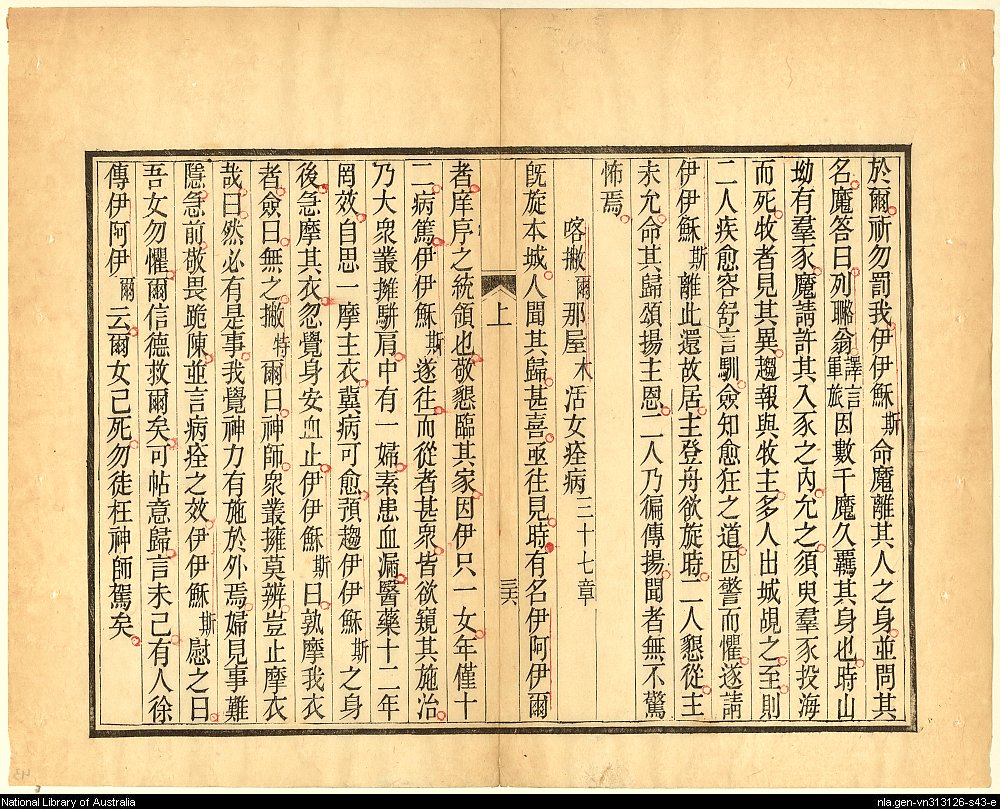 於爾祈勿罰我伊伊穌斯命魔離其人之身並問其
名魔答曰列聯翁譯言軍旅因數千魔久羈其身也時山
坳有羣豕魔請許其入豕之內允之須臾羣豕投海
而死牧者見其異趨報與牧主多人出城覘之至則
二人疾愈容舒言馴僉知愈狂之道因警而懼遂請
伊伊穌斯離此還故居主登舟欲旋時二人懇從主
未允命其歸頌揚主恩二人乃徧傳揚聞者無不驚
怖焉
喀撇爾那屋木活女痊病三十七章
旣旋本城人聞其歸甚喜亟往見時有名伊阿伊爾
上
三六
者庠序之統領也敬懇臨其家因伊只一女年僅十
二病篤伊伊穌斯遂往而從者甚衆皆欲窺其施治
乃大衆叢擁駢肩中有一婦素患血漏醫藥十二年
罔效自思一摩主衣冀病可愈預趨伊伊穌斯之身
後急摩其衣忽覺身安血止伊伊穌斯曰孰摩我衣
者僉曰無之撇特爾曰神師衆叢擁莫辨豈止摩衣
哉曰然必有是事我覺神力有施於外焉婦見事難
隱急前敬畏跪陳並言病痊之效伊伊穌斯慰之曰
吾女勿懼爾信德救爾矣可帖意歸言未已有人徐
傳伊阿伊爾云爾女已死勿徒枉神師駕矣
National Library of Australia
nla.gen-vn313126-s43-e